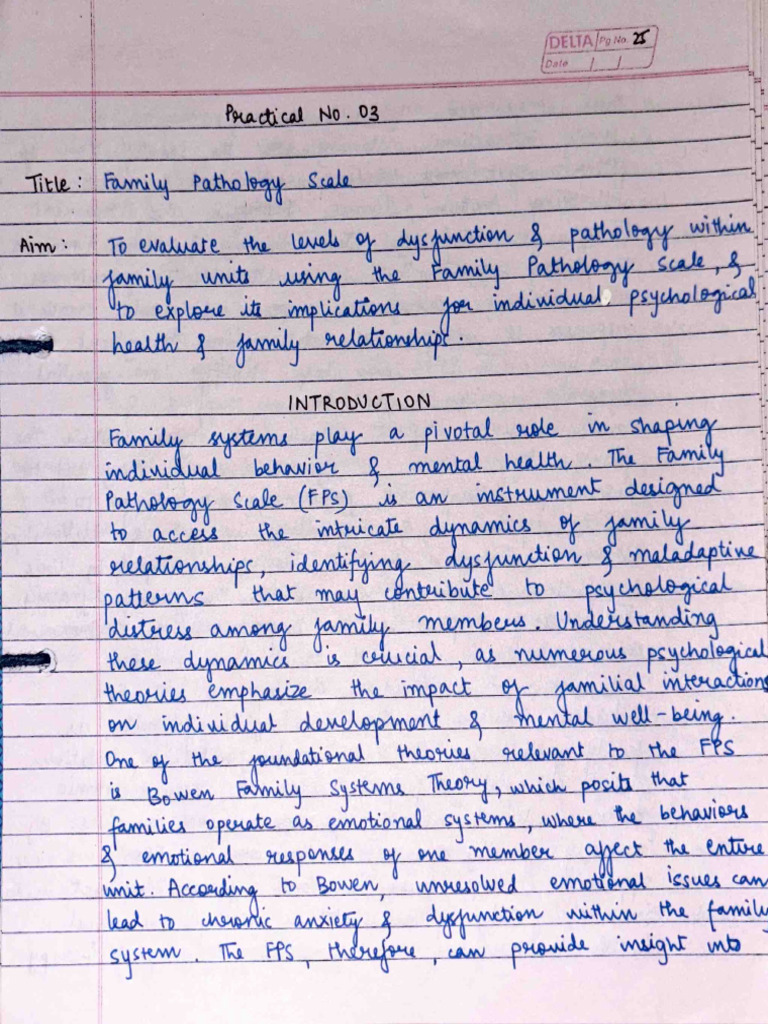 DELTA Pg No. 25
Date / /
Practical No. 03
Title : Family Pathology Scale
Aim : To evaluate the levels of dysfunction & pathology within
family units using the Family Pathology Scale, &
to explore its implications for individual psychological
health & family relationships.
INTRODUCTION
Family systems play a pivotal role in shaping
individual behavior & mental health. The Family
Pathology Scale (FPS) is an instrument designed
to access the intricate dynamics of family
relationships, identifying dysfunction & maladaptive
patterns that may contribute to psychological
distress among family members. Understanding
these dynamics is crucial, as numerous psychological
theories emphasize the impact of familial interactions
on individual development & mental well-being.
One of the foundational theories relevant to the FPS
is Bowen Family Systems Theory, which posits that
families operate as emotional systems, where the behaviors
& emotional responses of one member affect the entire
unit. According to Bowen, unresolved emotional issues can
lead to chronic anxiety & dysfunction within the family
system. The FPS, therefore, can provide insight into